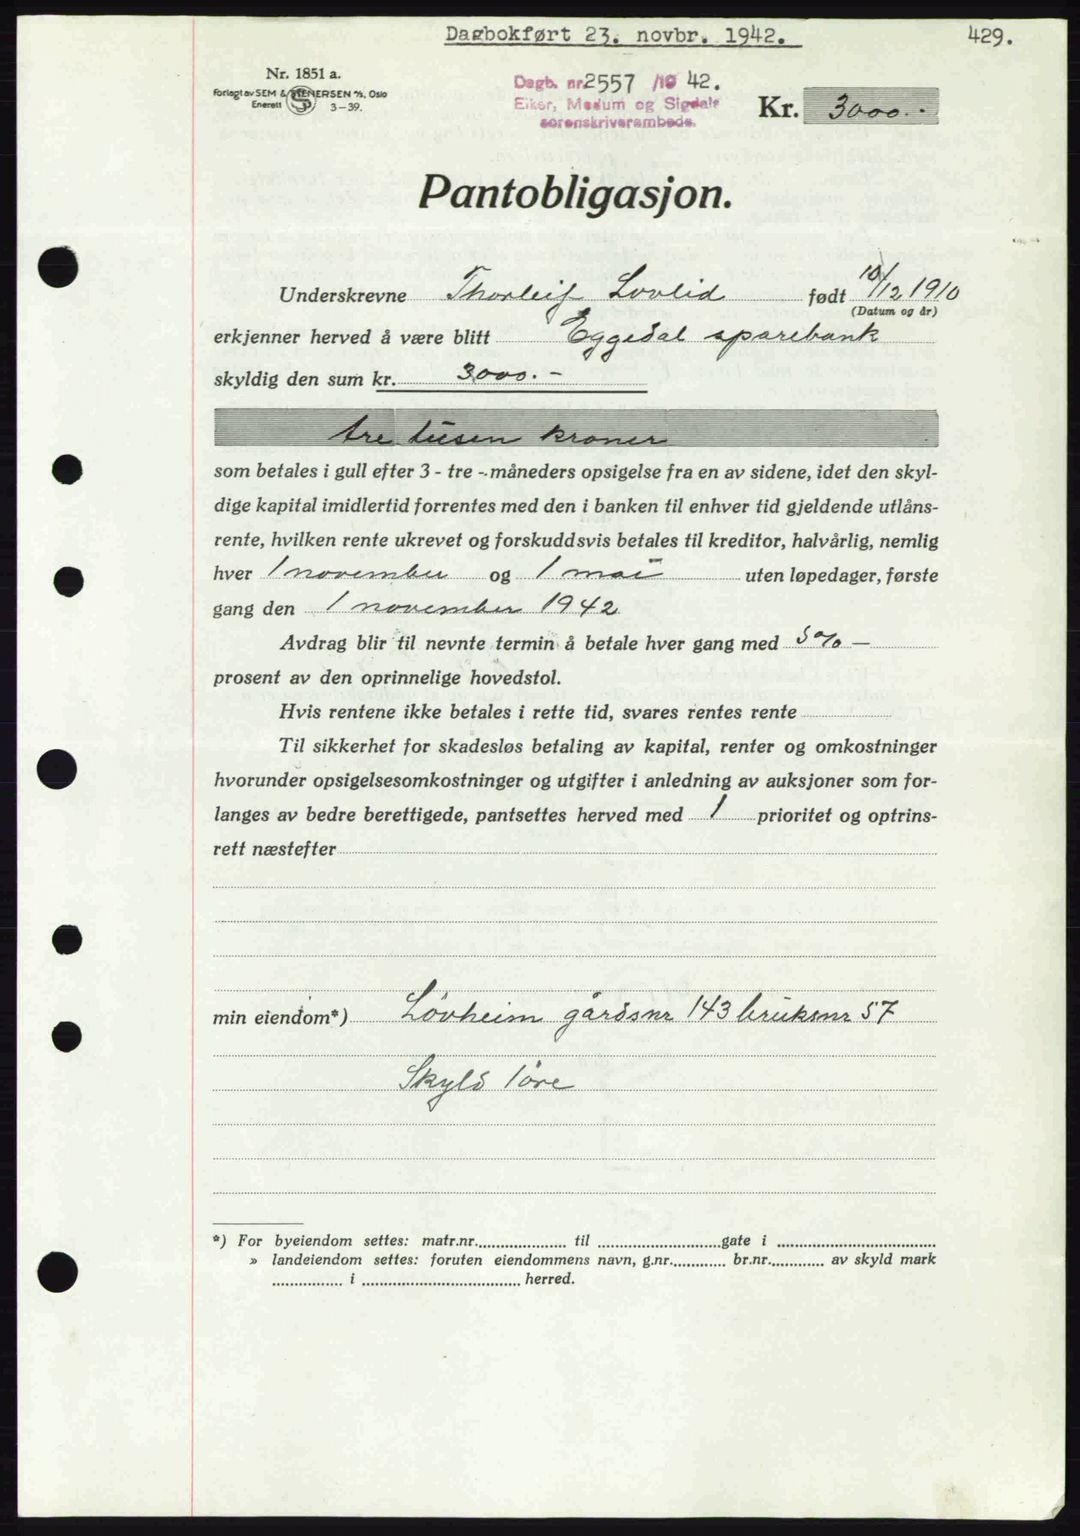 Dagbokført 23. novbr. 1942.
429.
Nr. 1851 a.
Forlagt av SEM & STENERSEN A/S, Oslo
Enerett 3-39.
Dagb. nr. 2557 /19 42.
Eiker, Modum og Sigdals
sorenskriverambede.
Kr. 3000.-
Pantobligasjon.
Underskrevne Thorleif Lovlid født 10/12 1910
(Datum og år)
erkjenner herved å være blitt Eggedal sparebank
skyldig den sum kr. 3000.-
tre tusen kroner
som betales i gull efter 3 - tre - måneders opsigelse fra en av sidene, idet den skyl-
dige kapital imidlertid forrentes med den i banken til enhver tid gjeldende utlåns-
rente, hvilken rente ukrevet og forskuddsvis betales til kreditor, halvårlig, nemlig
hver 1 november og 1 mai uten løpedager, første
gang den 1 november 1942
Avdrag blir til nevnte termin å betale hver gang med 5% —
prosent av den oprinnelige hovedstol.
Hvis rentene ikke betales i rette tid, svares rentes rente
Til sikkerhet for skadesløs betaling av kapital, renter og omkostninger
hvorunder opsigelsesomkostninger og utgifter i anledning av auksjoner som for-
langes av bedre berettigede, pantsettes herved med 1 prioritet og optrins-
rett næstefter
min eiendom*) Løvheim gårdsnr 143 bruksnr 57
Skyld 1 øre
*) For byeiendom settes: matr.nr. til gate i
» landeiendom settes: foruten eiendommens navn, g.nr. br.nr. av skyld mark
i herred.